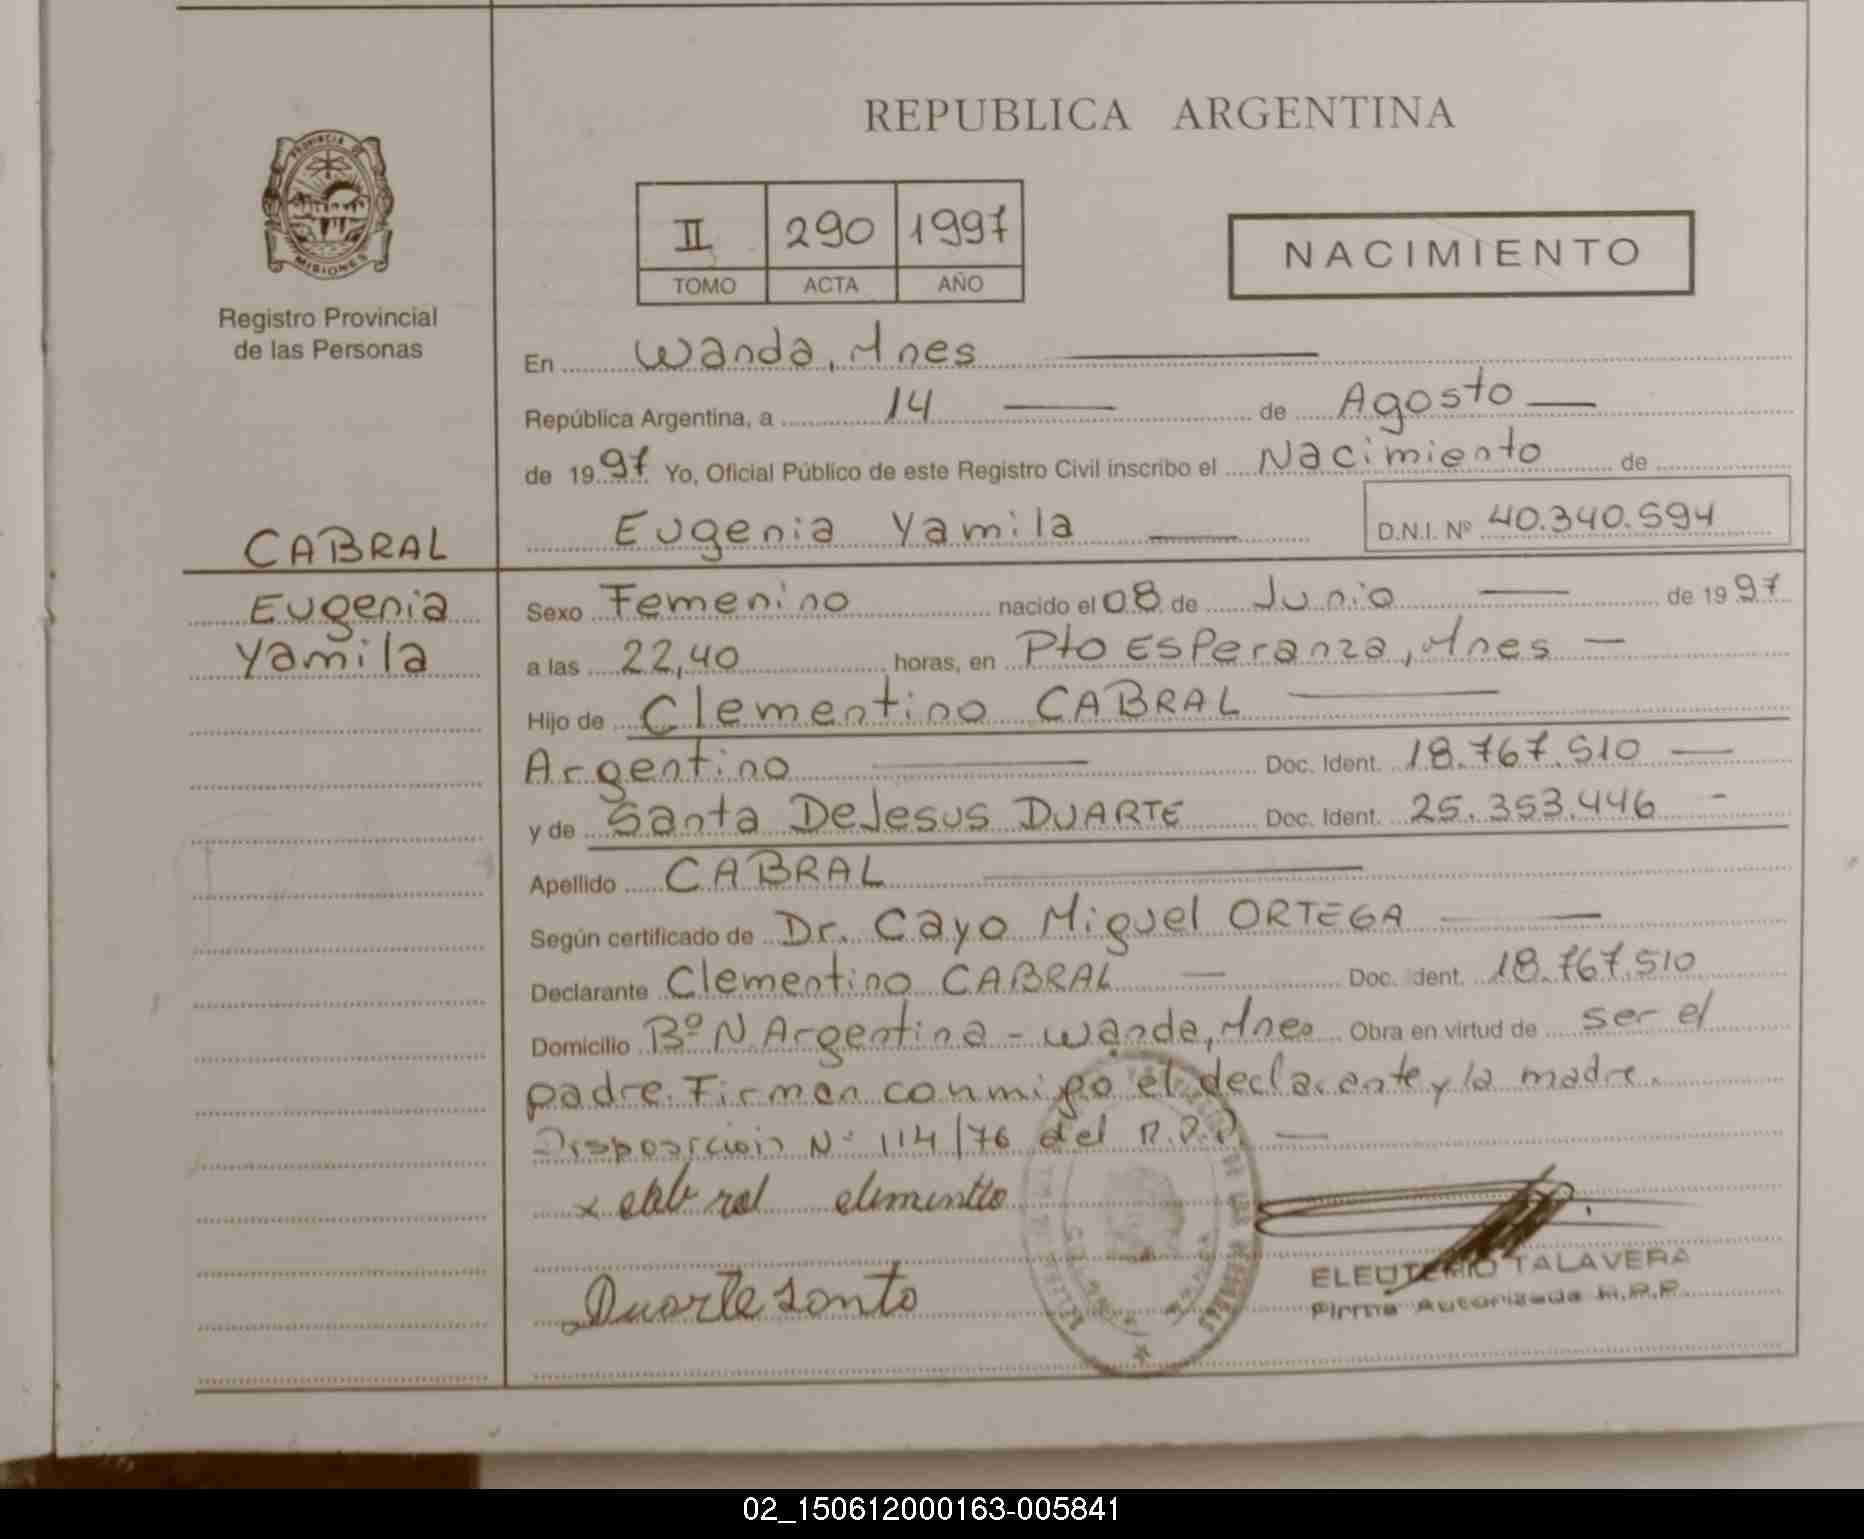 REPUBLICA ARGENTINA
PROVINCIA DE
MISIONES
Registro Provincial
de las Personas
II 290 1997
TOMO ACTA AÑO
NACIMIENTO
En Wanda, Mnes
República Argentina, a 14 de Agosto
de 1997 Yo, Oficial Público de este Registro Civil inscribo el Nacimiento de
Eugenia Yamila D.N.I. Nº 40.340.594
CABRAL
Eugenia
Yamila
Sexo Femenino nacido el 08 de Junio de 1997
a las 22,40 horas, en Pto Esperanza, Mnes
Hijo de Clementino CABRAL
Argentino Doc. Ident. 18.767.510
y de Santa DeJesus DUARTE Doc. Ident. 25.353.446
Apellido CABRAL
Según certificado de Dr. Cayo Miguel ORTEGA
Declarante Clementino CABRAL Doc. Ident. 18.767.510
Domicilio Bº N Argentina - Wanda, Mnes Obra en virtud de ser el
padre. Firman conmigo el declarante y la madre.
Disposicion Nº 114/76 del R.P.P.
x cabral clementto
Duarte santo
ELEUTERIO TALAVERA
Firma Autorizada R.P.P.
02_150612000163-005841